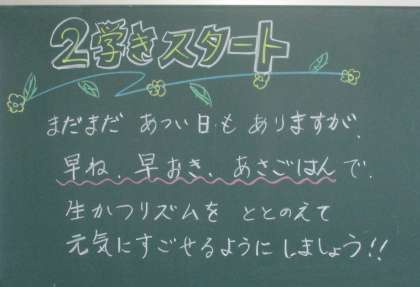 2学きスタート
まだまだ あつい日も ありますが、
早ね、早おき、あさごはんで、
生かつリズムを ととのえて
元気にすごせるように しましょう!!